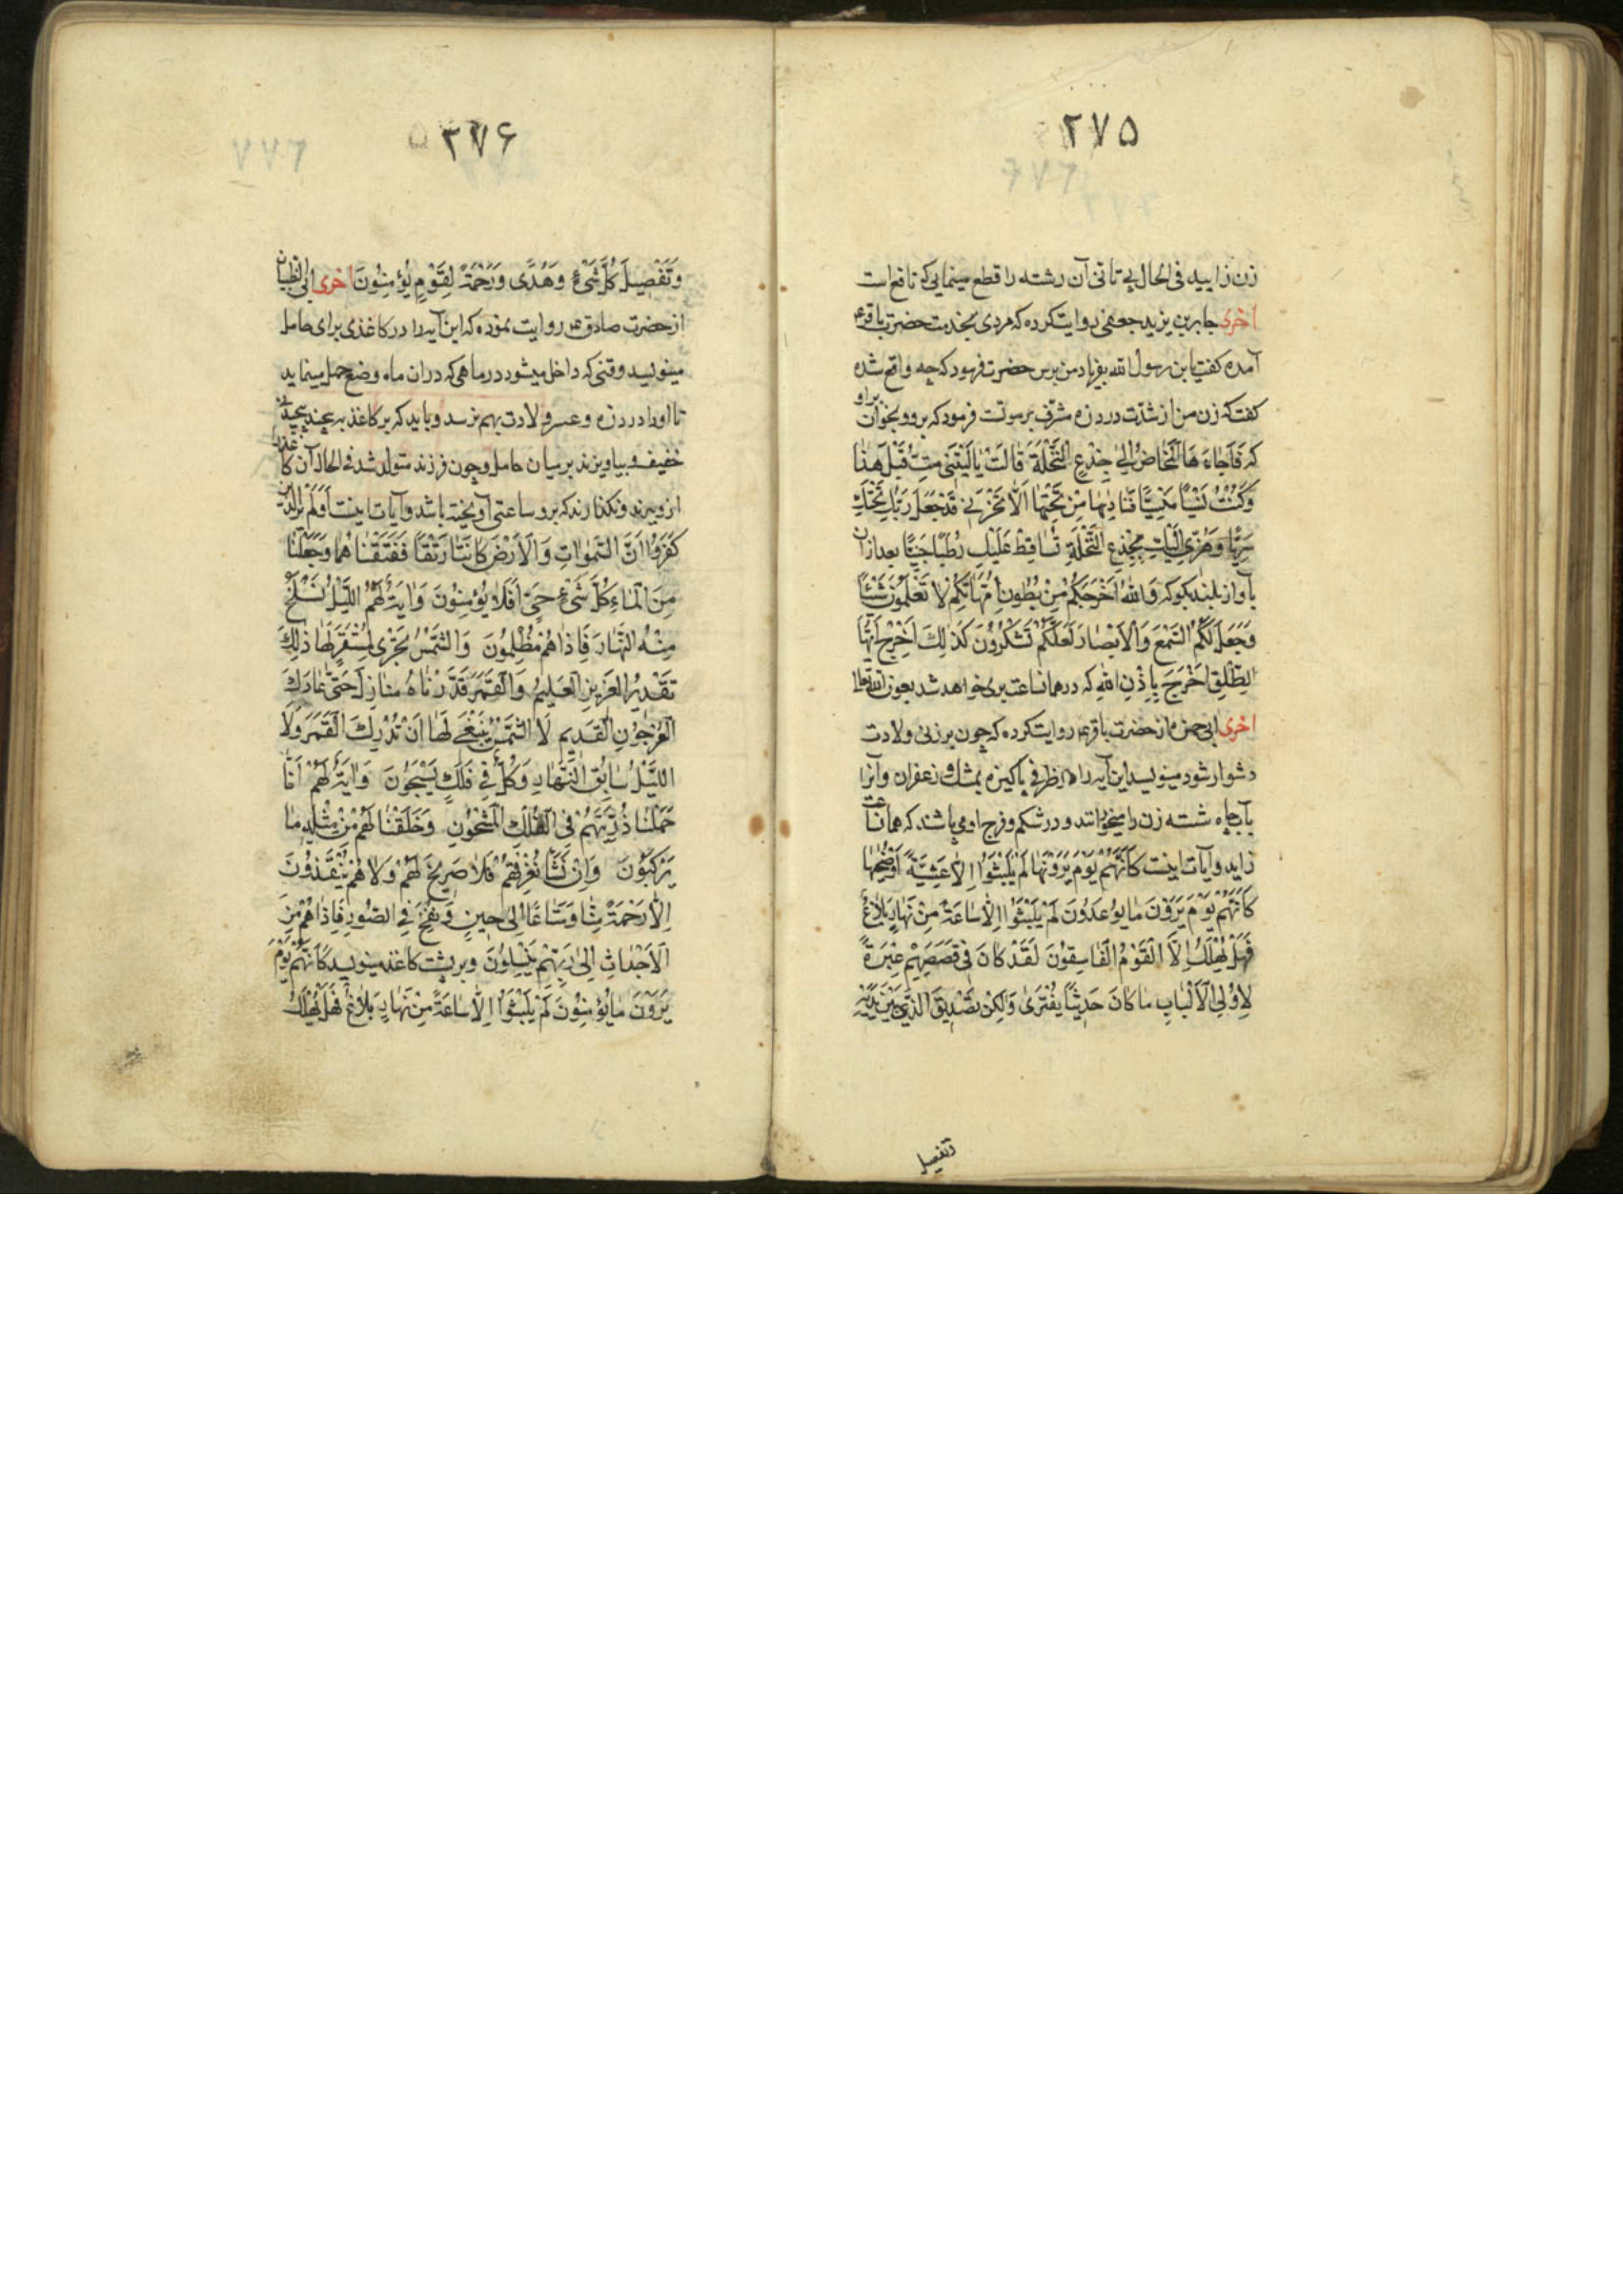 ۲۷۵
زن زایید فی الحال بی تانی آن رشته را قطع مینمایی که نافع است
اخری جابر بن یزید جعفی روایت کرده که مردی بخدمت حضرت باقر ع
آمده گفت یابن رسول الله بفریاد من برس حضرت فرمود که چه واقع شده
گفت که زن من از شدّت درد زه مشرف بر موتست فرمود که برو و بخوان براو
که فَاَجَاءَهَا الْمَخَاضُ اِلىٰ جِذْعِ النَّخْلَةِ قَالَتْ يَالَيْتَنِى مِتُّ قَبْلَ هٰذَا
وَكُنْتُ نَسْيًا مَنْسِيًّا فَنَادٰيهَا مِنْ تَحْتِهَا اَلَّا تَحْزَنِى قَدْ جَعَلَ رَبُّكِ تَحْتَكِ
سَرِيًّا وَهُزِّى اِلَيْكِ بِجِذْعِ النَّخْلَةِ تُسَاقِطْ عَلَيْكِ رُطَبًا جَنِيًّا بعد از آن
بآواز بلند بگو که وَاللهُ اَخْرَجَكُمْ مِنْ بُطُونِ اُمَّهَاتِكُمْ لَا تَعْلَمُونَ شَيْئًا
وَجَعَلَ لَكُمُ السَّمْعَ وَالْاَبْصَارَ لَعَلَّكُمْ تَشْكُرُونَ كَذٰلِكَ اُخْرُجْ اَيُّهَا
الطَّلْقُ اُخْرُجْ بِاِذْنِ اللهِ که در همانساعت بری خواهد شد بعون الله تعالی
اخری ابی حمزه از حضرت باقر ع روایت کرده که چون بر زنی ولادت
دشوار شود مینویسد این آیه را در ظرفی پاکیزه بمشک و زعفران و آنرا
بآب چاه شسته زن را میخورانند و در شکم و فرج او می پاشند که همانساعت
زاید و آیات اینست كَاَنَّهُمْ يَوْمَ يَرَوْنَهَا لَمْ يَلْبَثُوا اِلَّا عَشِيَّةً اَوْ ضُحٰيهَا
كَاَنَّهُمْ يَوْمَ يَرَوْنَ مَا يُوعَدُونَ لَمْ يَلْبَثُوا اِلَّا سَاعَةً مِنْ نَهَارٍ بَلَاغٌ
فَهَلْ يُهْلَكُ اِلَّا الْقَوْمُ الْفَاسِقُونَ لَقَدْ كَانَ فِى قَصَصِهِمْ عِبْرَةٌ
لِاُولِى الْاَلْبَابِ مَا كَانَ حَدِيثًا يُفْتَرٰى وَلٰكِنْ تَصْدِيقَ الَّذِى بَيْنَ يَدَيْهِ
وتفصیل
۲۷۶
وَتَفْصِيلَ كُلِّ شَىْءٍ وَهُدًى وَرَحْمَةً لِقَوْمٍ يُؤْمِنُونَ اخری ابی الظبیان
از حضرت صادق ع روایت نموده که این آیه را در کاغذی برای حامل
مینویسد وقتی که داخل میشود در ماهی که در ان ماه وضع حمل مینماید
تا او را درد زه و عسر ولادت بهم نرسد و باید که بر کاغذ بپیچند پیچیدنی
خفیف و بیاویزند بر میان حامل و چون فرزند متولد شد فی الحال آن کاغذ را
از و ببرند و نگذارند که برو ساعتی آویخته باشد و آیات اینست اَوَلَمْ يَرَ الَّذِينَ
كَفَرُوا اَنَّ السَّمٰوَاتِ وَالْاَرْضَ كَانَتَا رَتْقًا فَفَتَقْنَاهُمَا وَجَعَلْنَا
مِنَ الْمَاءِ كُلَّ شَىْءٍ حَىٍّ اَفَلَا يُؤْمِنُونَ وَاٰيَةٌ لَهُمُ اللَّيْلُ نَسْلَخُ
مِنْهُ النَّهَارَ فَاِذَا هُمْ مُظْلِمُونَ وَالشَّمْسُ تَجْرِى لِمُسْتَقَرٍّ لَهَا ذٰلِكَ
تَقْدِيرُ الْعَزِيزِ الْعَلِيمِ وَالْقَمَرَ قَدَّرْنَاهُ مَنَازِلَ حَتّٰى عَادَ كَ
الْعُرْجُونِ الْقَدِيمِ لَا الشَّمْسُ يَنْبَغِى لَهَا اَنْ تُدْرِكَ الْقَمَرَ وَلَا
اللَّيْلُ سَابِقُ النَّهَارِ وَكُلٌّ فِى فَلَكٍ يَسْبَحُونَ وَاٰيَةٌ لَهُمْ اَنَّا
حَمَلْنَا ذُرِّيَّتَهُمْ فِى الْفُلْكِ الْمَشْحُونِ وَخَلَقْنَا لَهُمْ مِنْ مِثْلِهِ مَا
يَرْكَبُونَ وَاِنْ نَشَأْ نُغْرِقْهُمْ فَلَا صَرِيخَ لَهُمْ وَلَا هُمْ يُنْقَذُونَ
اِلَّا رَحْمَةً مِنَّا وَمَتَاعًا اِلٰى حِينٍ وَنُفِخَ فِى الصُّورِ فَاِذَا هُمْ مِنَ
الْاَجْدَاثِ اِلٰى رَبِّهِمْ يَنْسِلُونَ و بر پشت کاغذ مینویسد كَاَنَّهُمْ يَوْمَ
يَرَوْنَ مَا يُؤْمِنُونَ لَمْ يَلْبَثُوا اِلَّا سَاعَةً مِنْ نَهَارٍ بَلَاغٌ فَهَلْ يُهْلَكُ